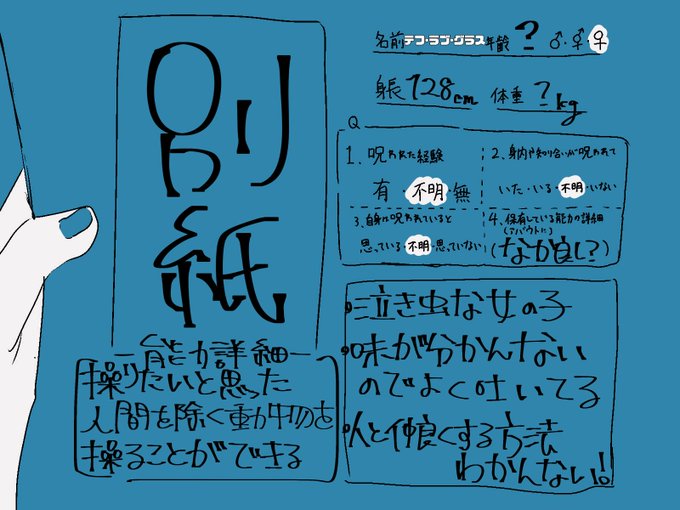 別紙
名前テコ・ラブ・グラス年齢 ? ♂・⚥・♀
身長128cm 体重 ?kg
Q
1. 呪われた経験
有・不明・無
2. 身内や知り合いが呪われて
いた・いる・不明・いない
3. 自身は呪われていると
思っている・不明・思っていない
4. 保有している能力の詳細
(アバウトに)
(なか良し?)
-能力詳細-
操りたいと思った
人間を除く動物を
操ることができる
・泣き虫な女の子
・味が分かんない
のでよく吐いてる
・人と仲良くする方法
わかんない!